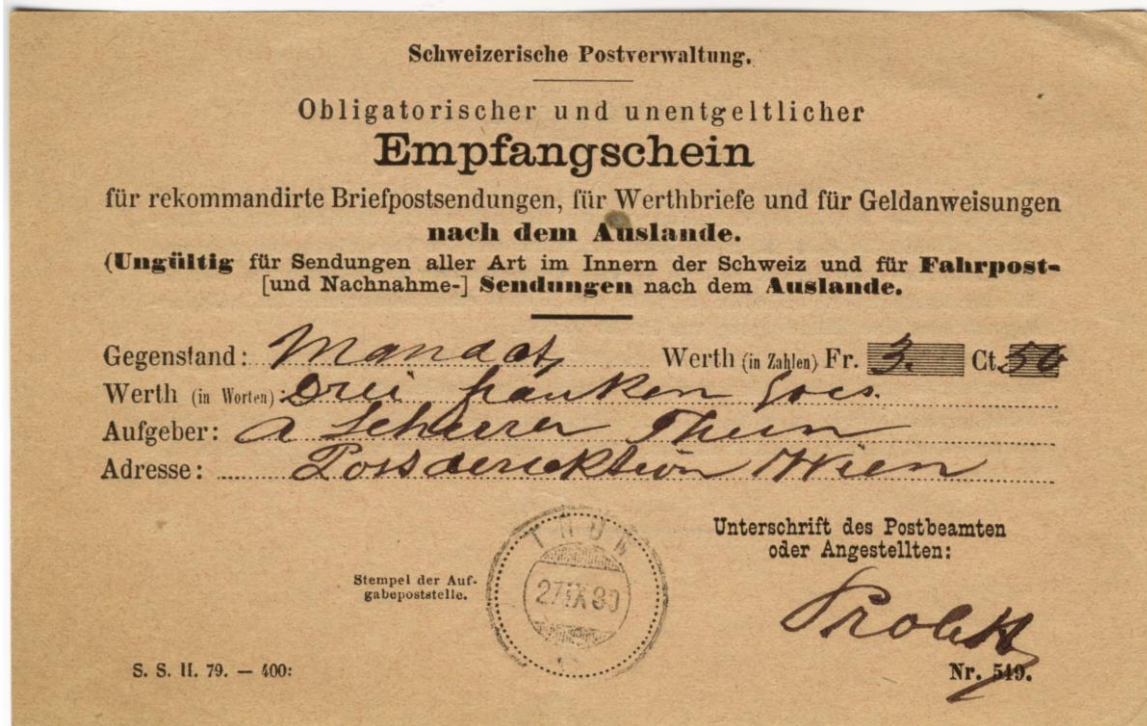 Schweizerische Postverwaltung.
Obligatorischer und unentgeltlicher
Empfangschein
für rekommandirte Briefpostsendungen, für Werthbriefe und für Geldanweisungen
nach dem Auslande.
(Ungültig für Sendungen aller Art im Innern der Schweiz und für Fahrpost-
[und Nachnahme-] Sendungen nach dem Auslande.
Gegenstand: Mandat, Werth (in Zahlen) Fr. 3. Ct. 50
Werth (in Worten): Drei franken
Aufgeber: A Scheurer Thun
Adresse: Postdirektion Wien
THUN
27 IX 80
Stempel der Auf-
gabepoststelle.
Unterschrift des Postbeamten
oder Angestellten:
S. S. II. 79. — 400:
Nr. 549.